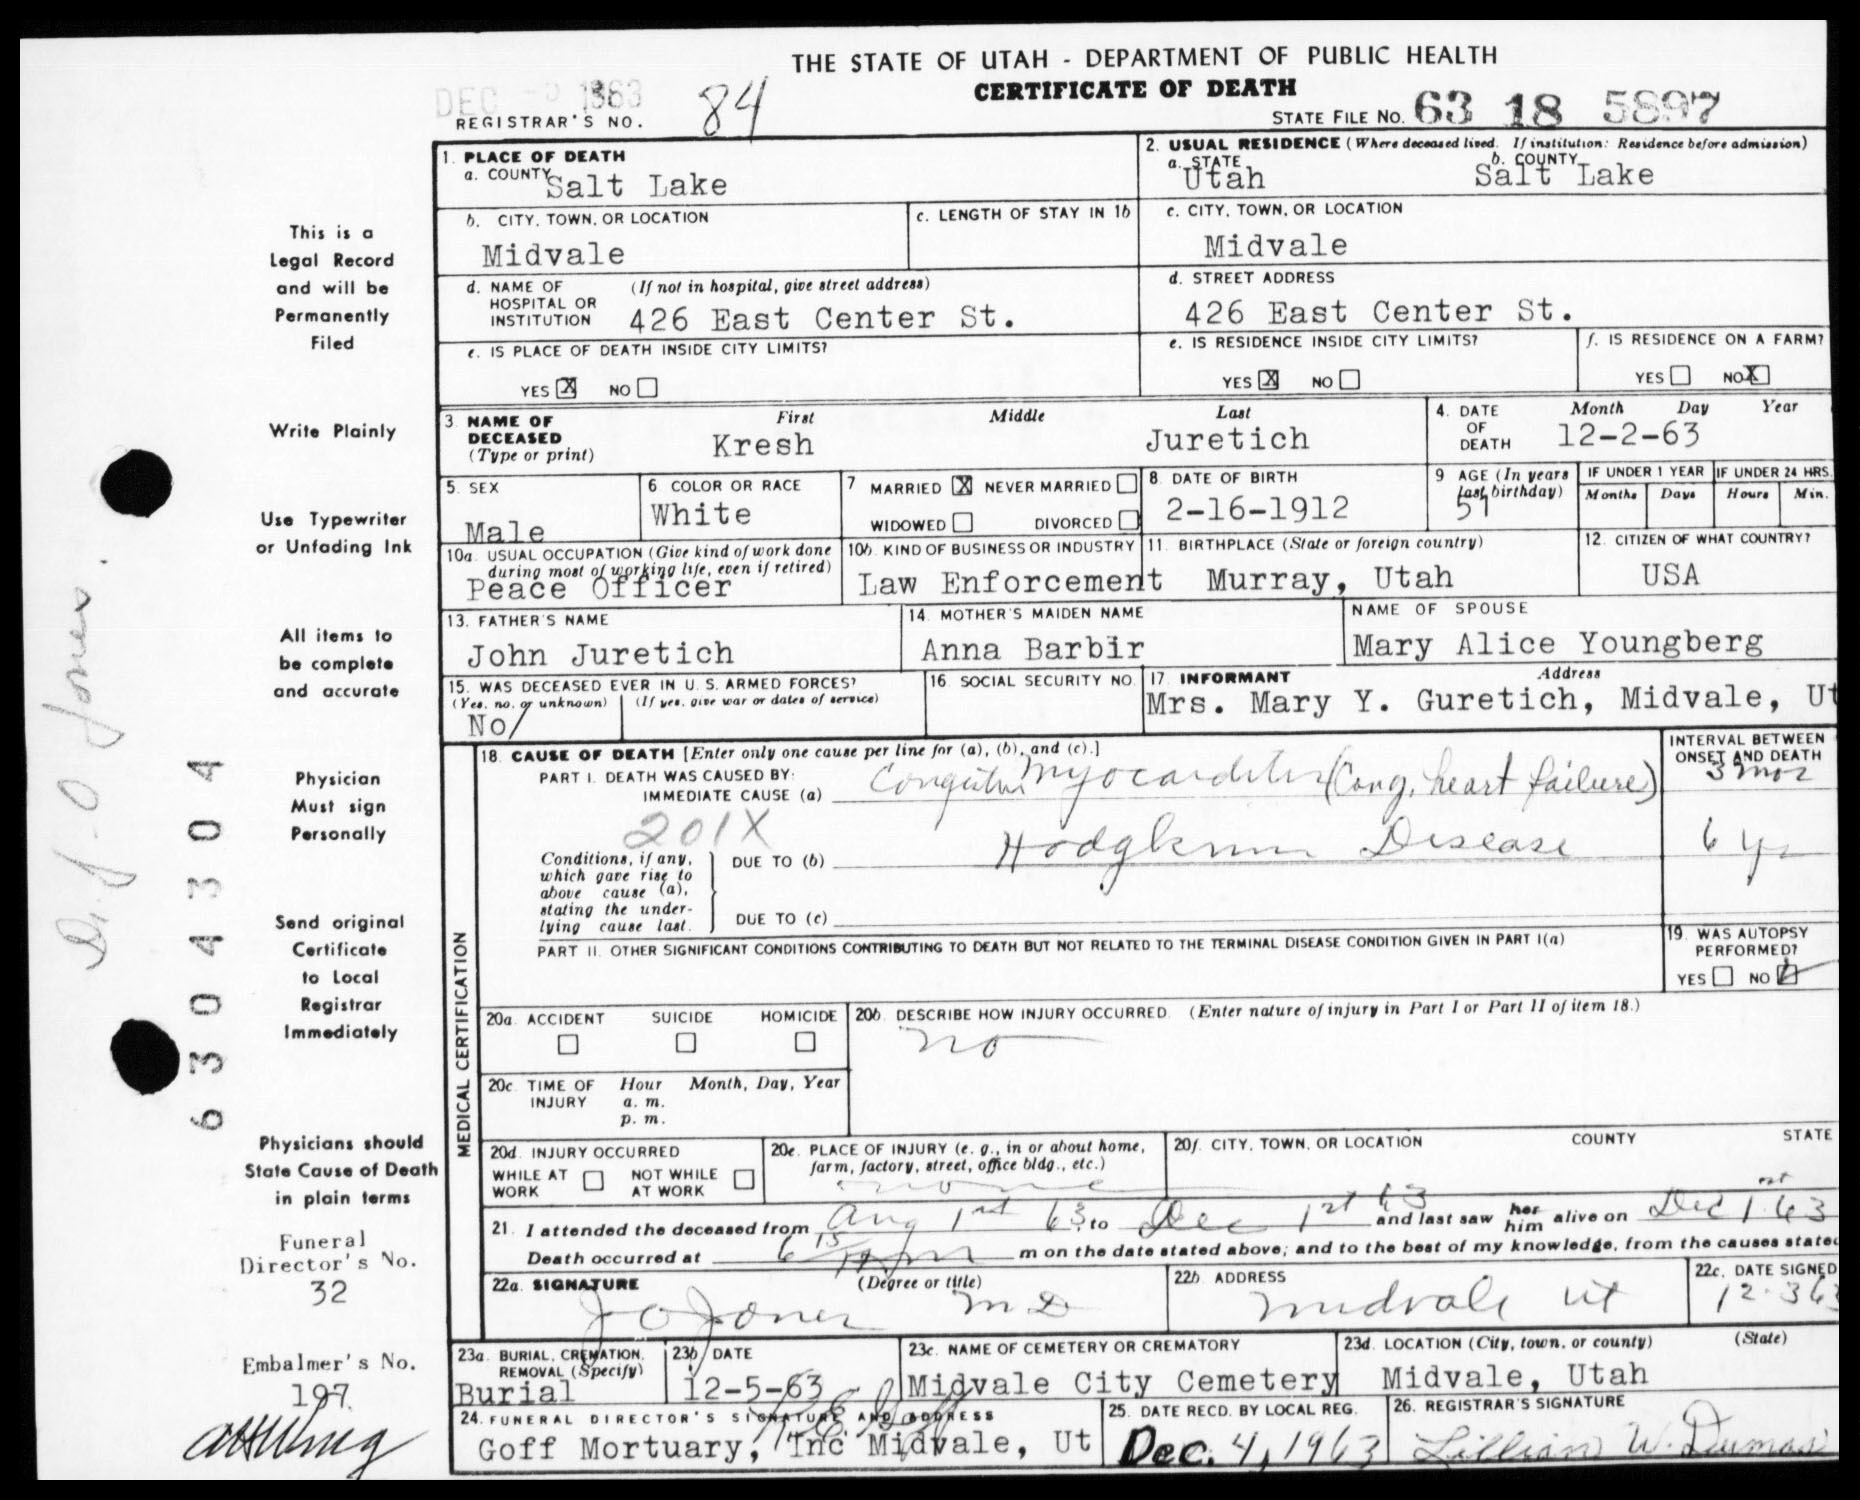 THE STATE OF UTAH - DEPARTMENT OF PUBLIC HEALTH
CERTIFICATE OF DEATH
DEC 1963
REGISTRAR'S NO. 84
STATE FILE NO. 63 18 5897
1. PLACE OF DEATH
a. COUNTY Salt Lake
2. USUAL RESIDENCE (Where deceased lived. If institution: Residence before admission)
a. STATE Utah b. COUNTY Salt Lake
b. CITY, TOWN, OR LOCATION Midvale
c. LENGTH OF STAY IN 1b
c. CITY, TOWN, OR LOCATION Midvale
d. NAME OF HOSPITAL OR INSTITUTION (If not in hospital, give street address) 426 East Center St.
d. STREET ADDRESS 426 East Center St.
e. IS PLACE OF DEATH INSIDE CITY LIMITS?
YES X NO
e. IS RESIDENCE INSIDE CITY LIMITS?
YES X NO
f. IS RESIDENCE ON A FARM?
YES NO X
3. NAME OF DECEASED (Type or print) First Middle Last
Kresh Juretich
4. DATE OF DEATH Month Day Year
12-2-63
5. SEX Male
6 COLOR OR RACE White
7 MARRIED X NEVER MARRIED
WIDOWED DIVORCED
8. DATE OF BIRTH 2-16-1912
9 AGE (In years last birthday) 51
IF UNDER 1 YEAR Months Days
IF UNDER 24 HRS. Hours Min.
10a. USUAL OCCUPATION (Give kind of work done during most of working life, even if retired)
Peace Officer
10b. KIND OF BUSINESS OR INDUSTRY
Law Enforcement
11. BIRTHPLACE (State or foreign country)
Murray, Utah
12. CITIZEN OF WHAT COUNTRY?
USA
13. FATHER'S NAME
John Juretich
14. MOTHER'S MAIDEN NAME
Anna Barbir
NAME OF SPOUSE
Mary Alice Youngberg
15. WAS DECEASED EVER IN U. S. ARMED FORCES?
(Yes, no, or unknown) (If yes, give war or dates of service)
No
16. SOCIAL SECURITY NO.
17. INFORMANT Address
Mrs. Mary Y. Guretich, Midvale, Ut
18. CAUSE OF DEATH [Enter only one cause per line for (a), (b), and (c).]
INTERVAL BETWEEN ONSET AND DEATH
PART I. DEATH WAS CAUSED BY:
IMMEDIATE CAUSE (a) Myocarditis (Cong. heart failure) 3 mos
201X
Conditions, if any, which gave rise to above cause (a), stating the underlying cause last.
DUE TO (b) Hodgkins Disease 6 yr
DUE TO (c)
PART II. OTHER SIGNIFICANT CONDITIONS CONTRIBUTING TO DEATH BUT NOT RELATED TO THE TERMINAL DISEASE CONDITION GIVEN IN PART I(a)
19. WAS AUTOPSY PERFORMED?
YES NO
MEDICAL CERTIFICATION
20a. ACCIDENT SUICIDE HOMICIDE
20b. DESCRIBE HOW INJURY OCCURRED. (Enter nature of injury in Part I or Part II of item 18.)
no
20c. TIME OF INJURY Hour Month, Day, Year
a. m.
p. m.
20d. INJURY OCCURRED
WHILE AT WORK NOT WHILE AT WORK
20e. PLACE OF INJURY (e. g., in or about home, farm, factory, street, office bldg., etc.)
none
20f. CITY, TOWN, OR LOCATION COUNTY STATE
21. I attended the deceased from Aug 1st 63 to Dec 1st 63 and last saw her him alive on Dec 1st 63
Death occurred at 6 15 pm m on the date stated above; and to the best of my knowledge, from the causes stated
22a. SIGNATURE (Degree or title)
J O Jones MD
22b. ADDRESS
Midvale Ut
22c. DATE SIGNED
12-3-63
23a. BURIAL, CREMATION, REMOVAL (Specify)
Burial
23b. DATE
12-5-63
23c. NAME OF CEMETERY OR CREMATORY
Midvale City Cemetery
23d. LOCATION (City, town, or county) (State)
Midvale, Utah
24. FUNERAL DIRECTOR'S SIGNATURE AND ADDRESS
Goff Mortuary, Inc Midvale, Ut
25. DATE RECD. BY LOCAL REG.
Dec. 4, 1963
26. REGISTRAR'S SIGNATURE
Lillian W. Dumas
This is a
Legal Record
and will be
Permanently
Filed
Write Plainly
Use Typewriter
or Unfading Ink
All items to
be complete
and accurate
Physician
Must sign
Personally
Send original
Certificate
to Local
Registrar
Immediately
Physicians should
State Cause of Death
in plain terms
Funeral
Director's No.
32
Embalmer's No.
197
6304304
Dr. J. O Jones.